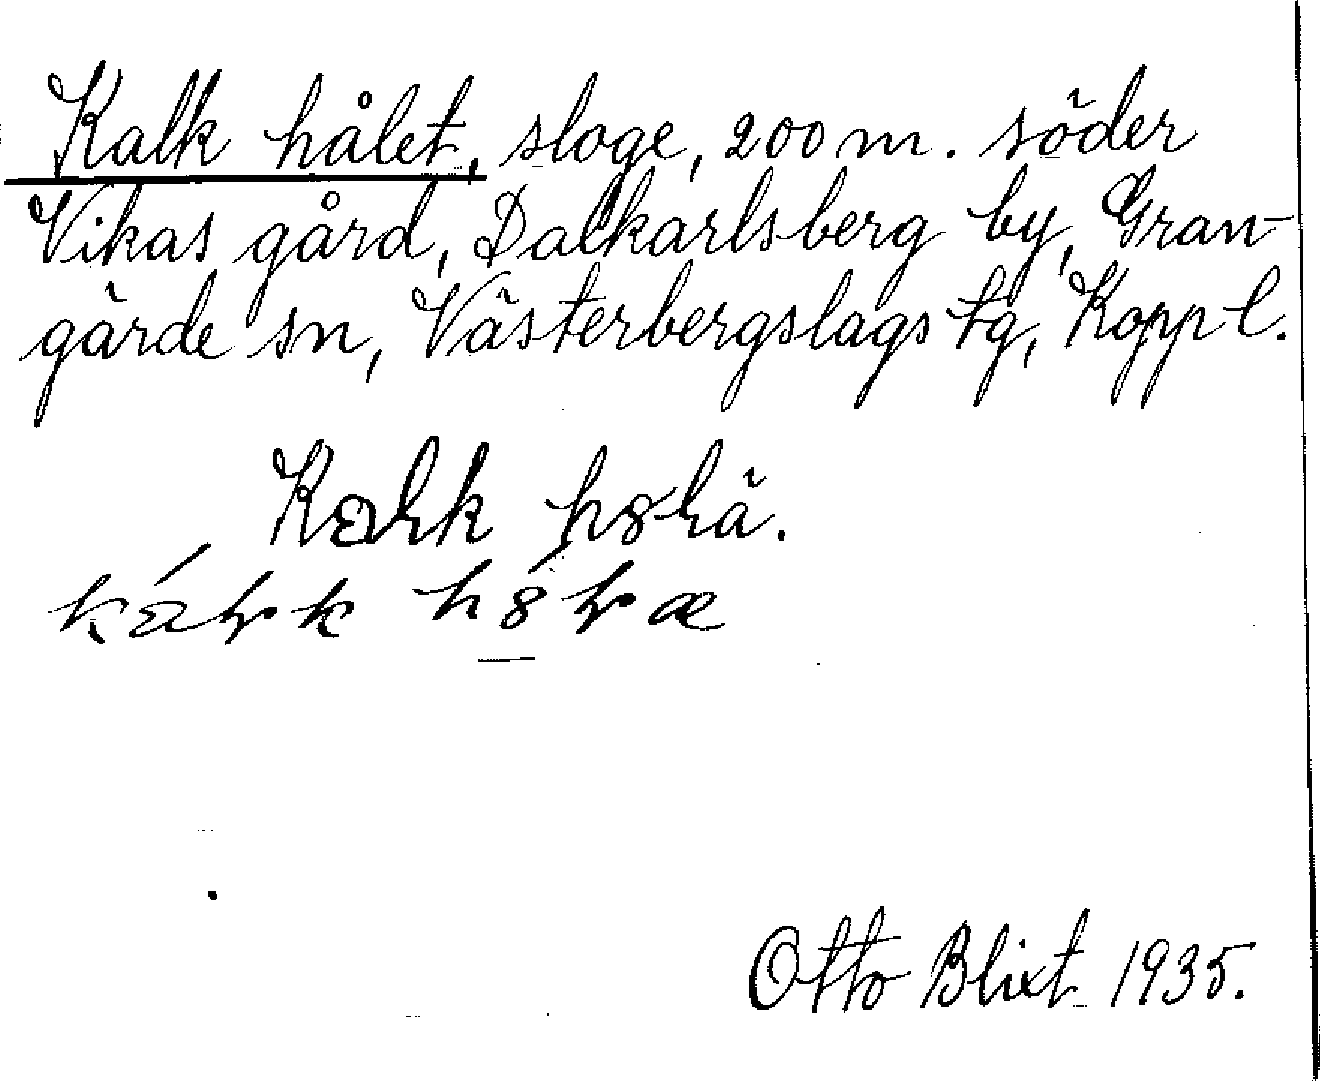 Kalk hålet, sloge, 200 m. söder
Vikas gård, Dalkarlsberg by, Gran-
gärde sn, Västerbergslags tg, Kopp l.
Kalk hålä.
Otto Blixt 1935.